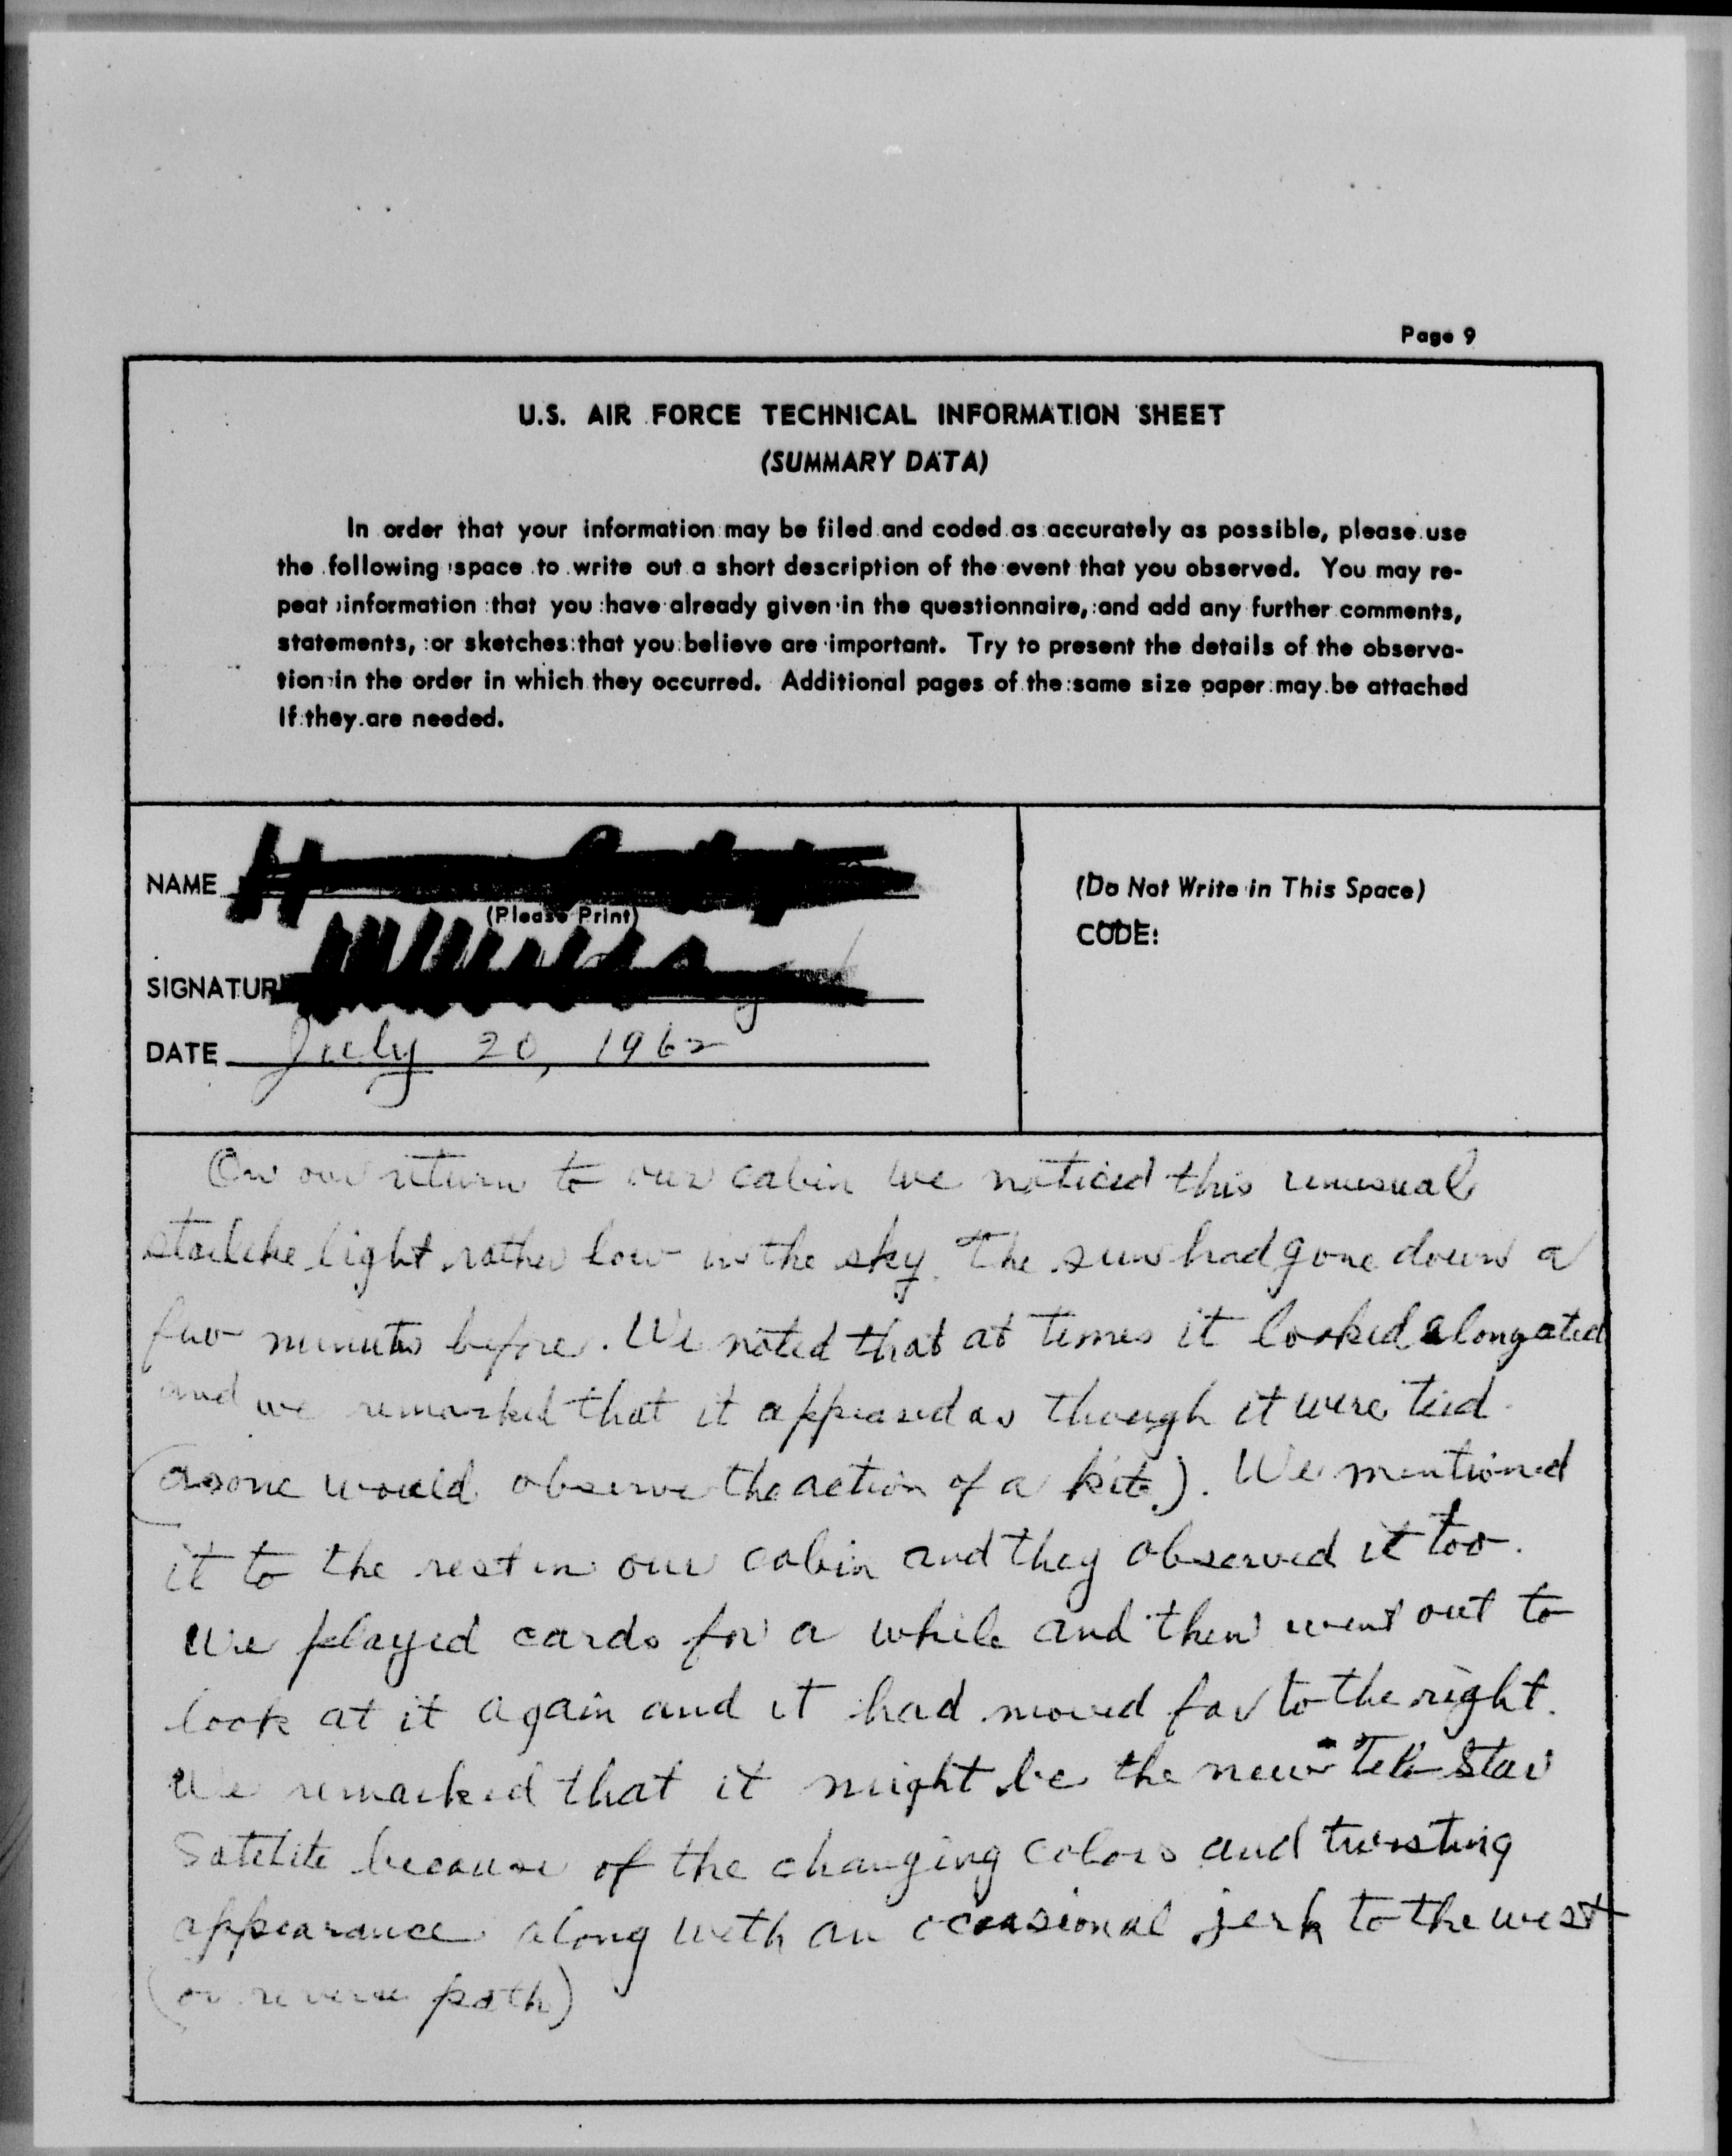 Page 9
U.S. AIR FORCE TECHNICAL INFORMATION SHEET
(SUMMARY DATA)
In order that your information may be filed and coded as accurately as possible, please use
the following space to write out a short description of the event that you observed. You may re-
peat information that you have already given in the questionnaire, and add any further comments,
statements, or sketches that you believe are important. Try to present the details of the observa-
tion in the order in which they occurred. Additional pages of the same size paper may be attached
if they are needed.
NAME
(Please Print)
SIGNATUR
DATE July 20, 1962
(Do Not Write in This Space)
CODE:
On our return to our cabin we noticed this unusual
starlike light rather low in the sky. The sun had gone down a
few minutes before. We noted that at times it looked alongated
and we remarked that it appeared as though it were tied
(as one would observe the action of a kite). We mentioned
it to the rest in our cabin and they observed it too.
We played cards for a while and then went out to
look at it again and it had moved far to the right.
We remarked that it might be the new Tele Star
Satelite because of the changing colors and twisting
appearance along with an occasional jerk to the west
(or reverse path)